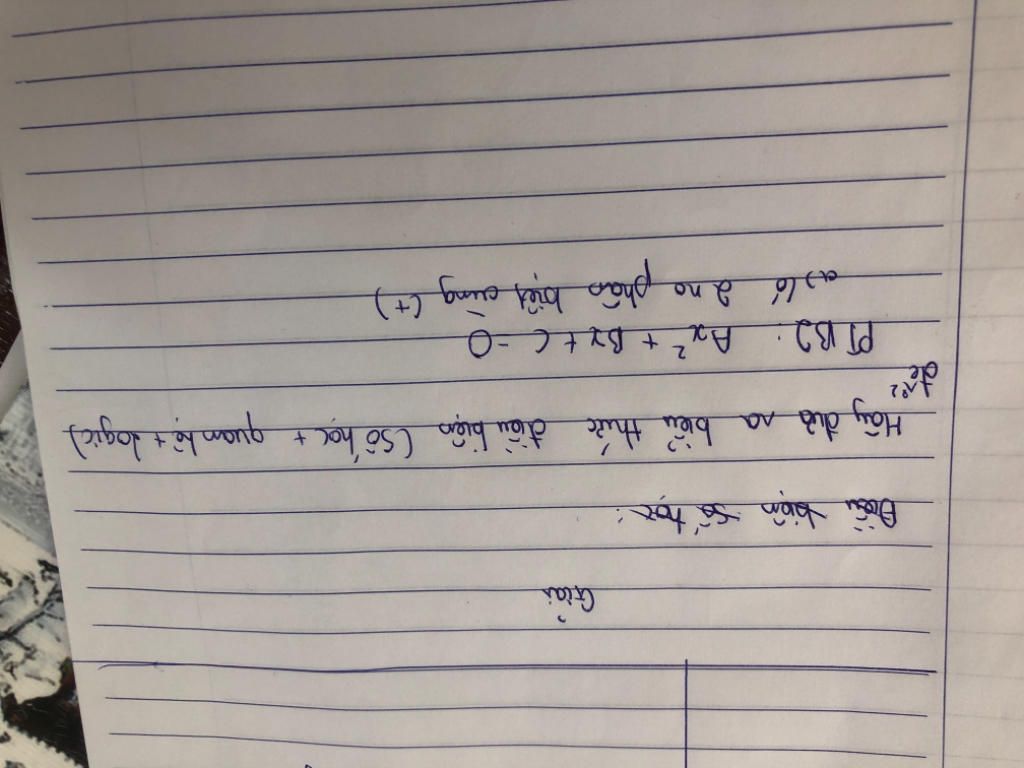 Giải
Điều kiện số học:
Hãy đưa ra biểu thức điều kiện (Số học + quan hệ + logic)
để
PTB2: Ax² + Bx + C = 0
a) Có 2 no phân biệt cùng (+)